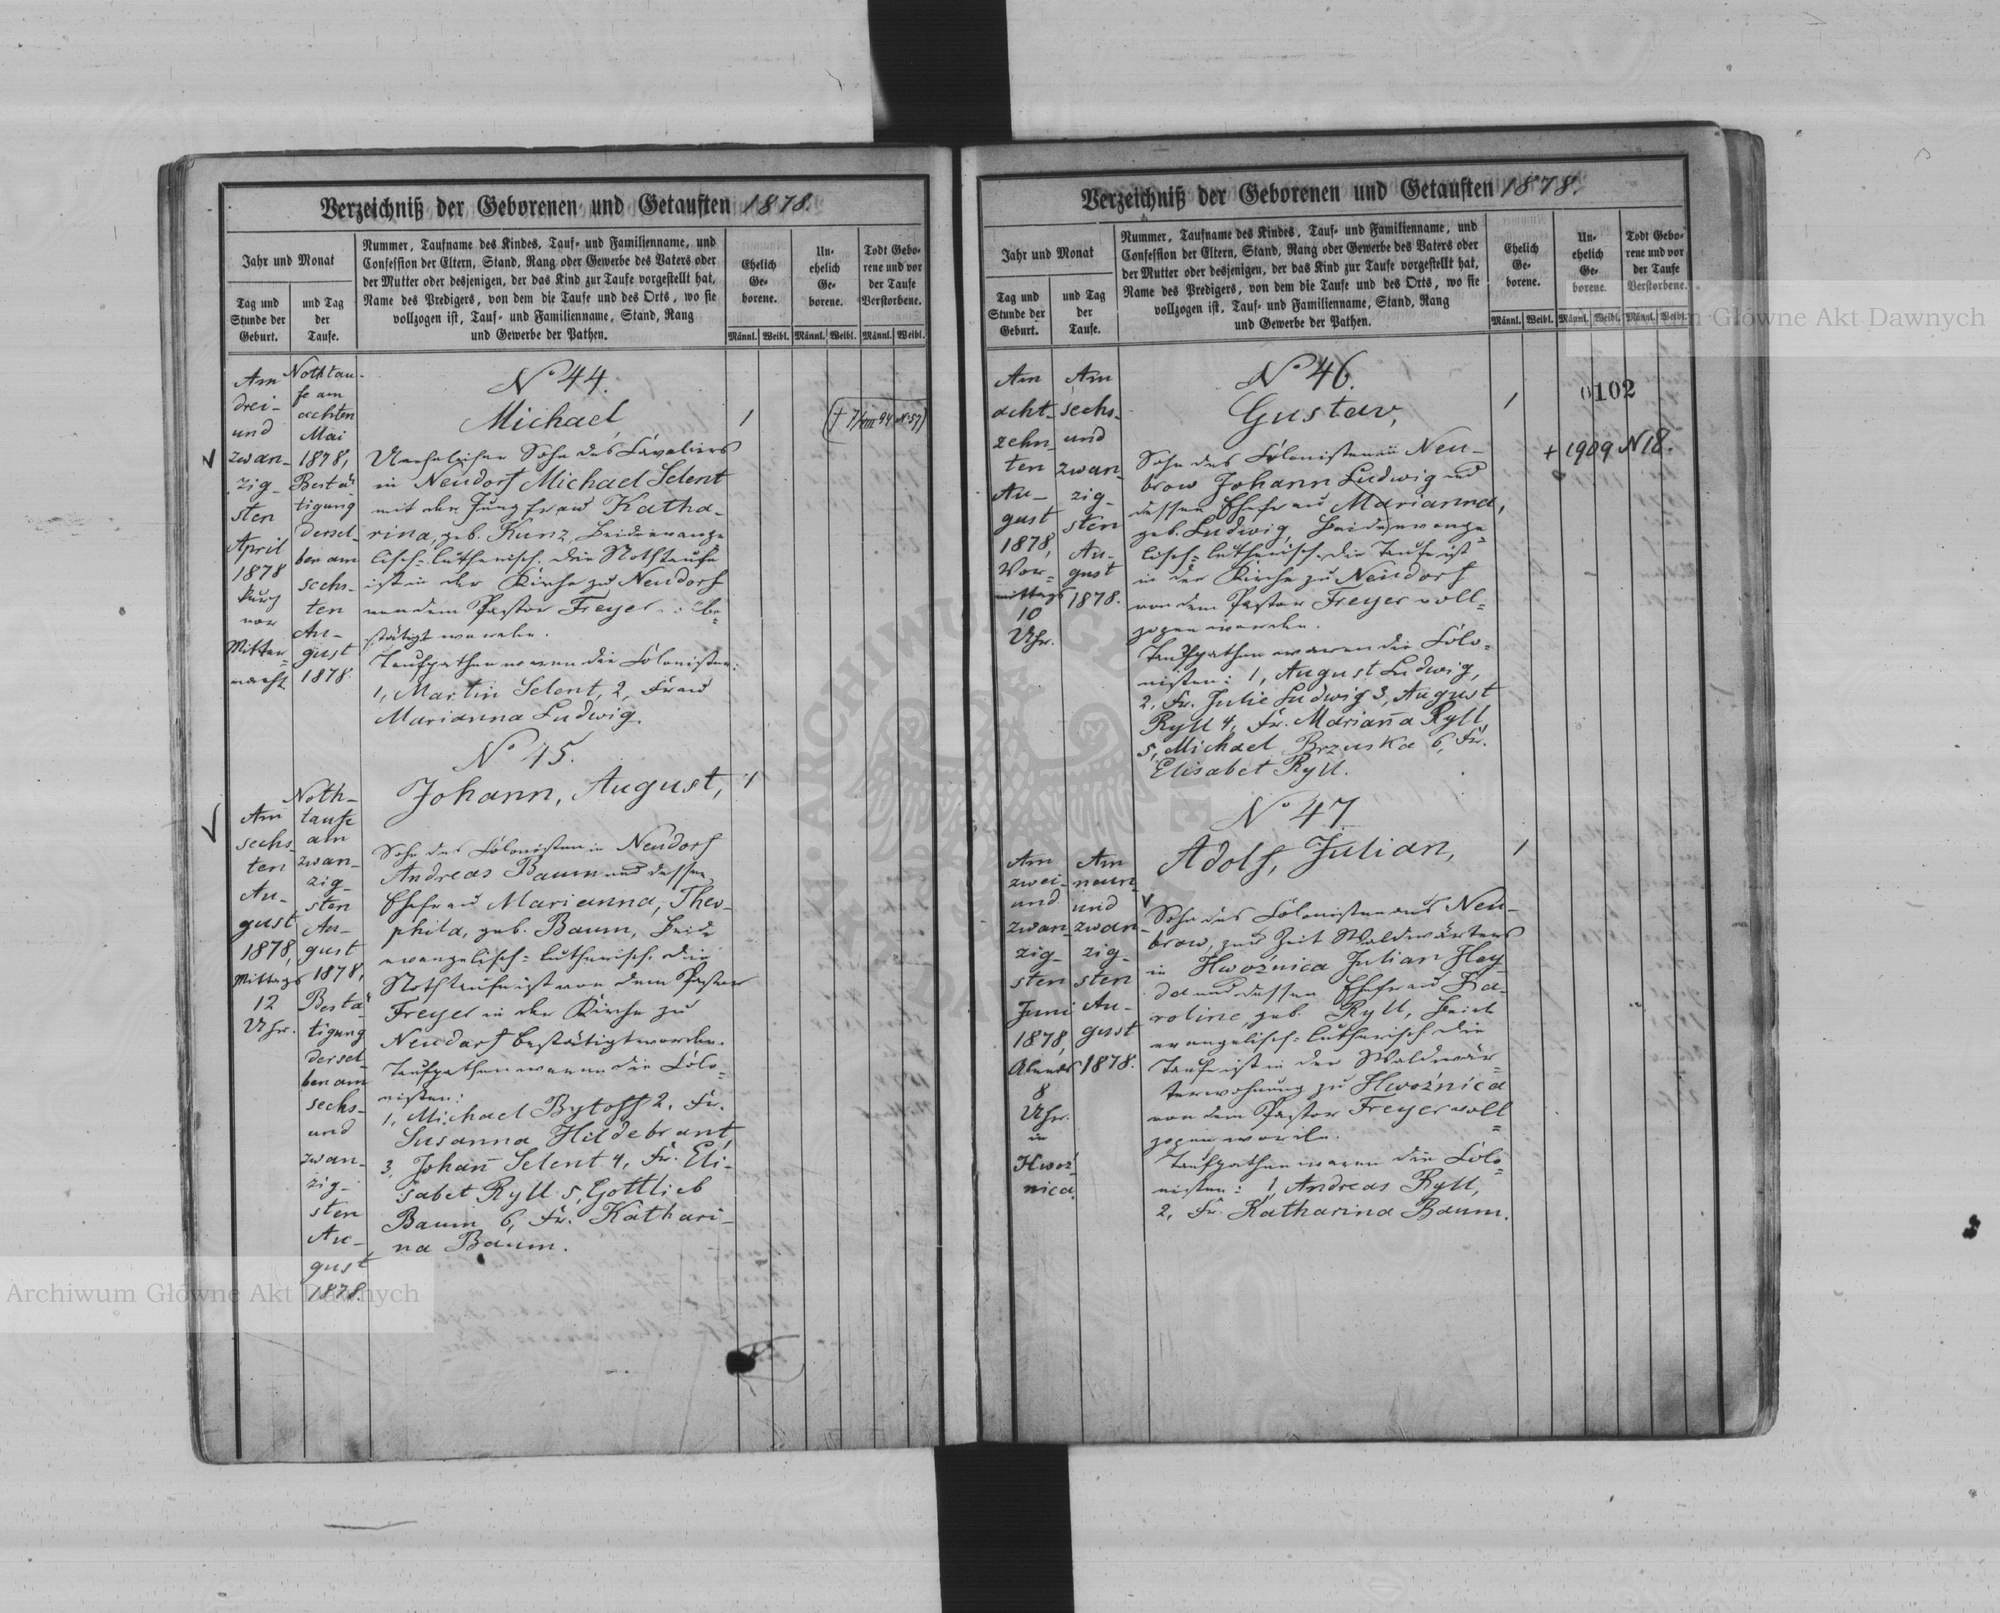 Verzeichniß der Geborenen und Getauften 1878.
Jahr und Monat
Tag und
Stunde der
Geburt.
und Tag
der
Taufe.
Nummer, Taufname des Kindes, Tauf- und Familienname, und
Confession der Eltern, Stand, Rang oder Gewerbe des Vaters oder
der Mutter oder desjenigen, der das Kind zur Taufe vorgestellt hat,
Name des Predigers, von dem die Taufe und des Orts, wo sie
vollzogen ist, Tauf- und Familienname, Stand, Rang
und Gewerbe der Pathen.
Ehelich
Ge-
borene.
Un-
ehelich
Ge-
borene.
Todt Gebo-
rene und vor
der Taufe
Verstorbene.
Männl. Weibl. Männl. Weibl. Männl. Weibl.
Am
drei-
und
zwan-
zig-
sten
April
1878
kurz
vor
Mitter=
nacht.
Nothtau-
fe am
achten
Mai
1878,
Bestä-
tigung
dersel-
ben am
sechs-
ten
Au-
gust
1878.
No 44.
Michael
1
Unehelicher Sohn des
in Neudorf Michael Selent
mit der Jungfrau Katha-
rina, geb. Kunz, Beide evange
lisch=lutherisch. Die Nothtaufe
ist in der Kirche zu Neudorf
von dem Pastor Freyer be=
stätigt worden.
Taufpathen waren die Colonisten:
1, Martin Selent, 2, Frau
Marianna Ludwig.
Am
sechs-
ten
Au-
gust
1878,
Mittags
12
Uhr.
Noth-
taufe
am
zwan-
zig-
sten
Au-
gust
1878,
Bestä-
tigung
dersel-
ben am
sechs-
und
zwan-
zig-
sten
Au-
gust
1878.
No 45.
Johann, August,
1
Sohn des Colonisten in Neudorf
Andreas Baum und dessen
Ehefrau Marianna, Theo-
phila, geb. Baum, Beide
evangelisch=lutherisch. Die
Nothtaufe ist von dem Pastor
Freyer in der Kirche zu
Neudorf bestätigt worden.
Taufpathen waren die Colo=
nisten:
1, Michael Bytoff 2, Fr.
Susanna Hildebrant
3, Johan̄ Selent 4, Fr. Eli-
sabet Ryll 5, Gottlieb
Baum 6, Fr. Kathari-
na Baum.
Verzeichniß der Geborenen und Getauften 1878.
Jahr und Monat
Tag und
Stunde der
Geburt.
und Tag
der
Taufe.
Nummer, Taufname des Kindes, Tauf- und Familienname, und
Confession der Eltern, Stand, Rang oder Gewerbe des Vaters oder
der Mutter oder desjenigen, der das Kind zur Taufe vorgestellt hat,
Name des Predigers, von dem die Taufe und des Orts, wo sie
vollzogen ist, Tauf- und Familienname, Stand, Rang
und Gewerbe der Pathen.
Ehelich
Ge-
borene.
Un-
ehelich
Ge-
borene.
Todt Gebo-
rene und vor
der Taufe
Verstorbene.
Männl. Weibl. Männl. Weibl. Männl. Weibl.
Am
acht-
zehn-
ten
Au-
gust
1878,
Vor=
mittags
10
Uhr.
Am
sechs-
und
zwan-
zig-
sten
Au-
gust
1878.
No 46.
Gustav,
1
0102
+ 1909 N 18.
Sohn des Colonisten in Neu-
brow Johann Ludwig und
dessen Ehefrau Marianna,
geb. Ludwig, Beide evange=
lisch=lutherisch. Die Taufe ist
in der Kirche zu Neudorf
von dem Pastor Freyer voll=
zogen worden.
Taufpathen waren die Colo=
nisten: 1, August Ludwig,
2, Fr. Julie Ludwig 3, August
Ryll 4, Fr. Marian̄a Ryll,
5, Michael Brzuska 6, Fr.
Elisabet Ryll.
Am
zwei-
und
zwan-
zig-
sten
Juni
1878,
Abends
8
Uhr.
in
Hwoź
nica.
Am
neun-
und
zwan-
zig-
sten
Au-
gust
1878.
No 47
Adolf, Julian,
1
Sohn des Colonisten aus Neu-
brow, zur Zeit Waldwärters
in Hwoźnica Julian Hay-
da und dessen Ehefrau Ka-
roline, geb. Ryll, Beide
evangelisch=lutherisch Die
Taufe ist in der Waldwär=
terwohnung zu Hwoźnica
von dem Pastor Freyer voll
zogen worden.
Taufpathen waren die Colo=
nisten: 1, Andreas Ryll,
2, Fr. Katharina Baum.
Archiwum Główne Akt Dawnych
m Główne Akt Dawnych